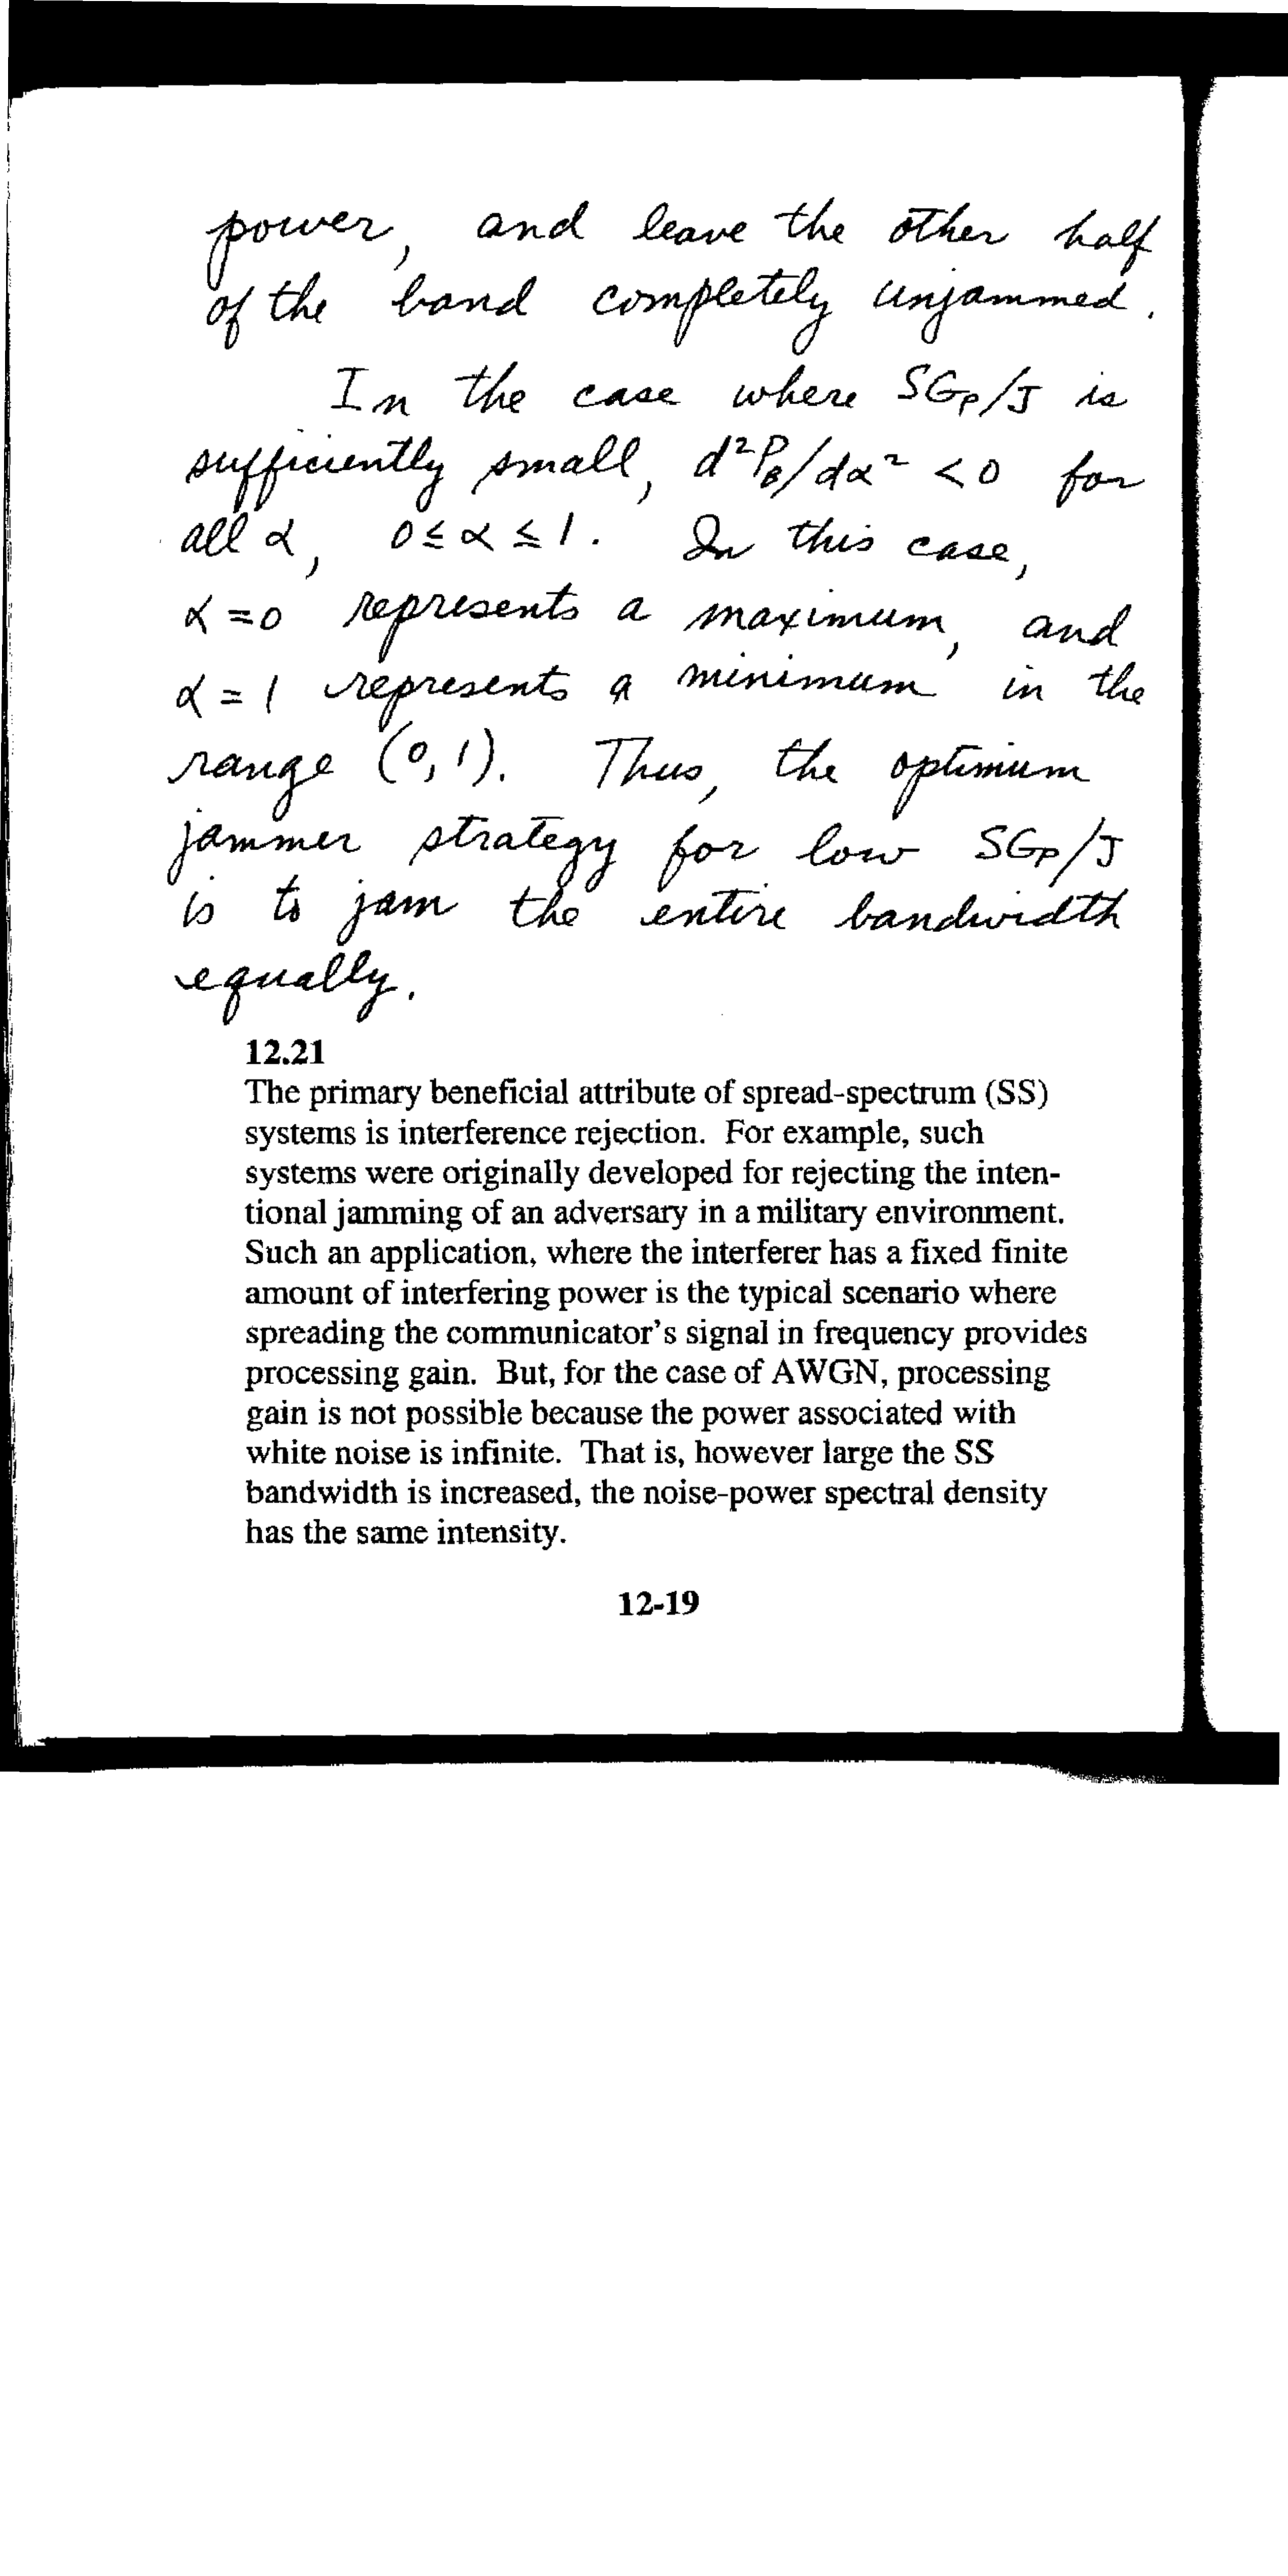 power, and leave the other half
of the band completely unjammed.
In the case where SGₚ/J is
sufficiently small, d²P_B/dα² < 0 for
all α, 0 ≤ α ≤ 1. In this case,
α = 0 represents a maximum, and
α = 1 represents a minimum in the
range (0, 1). Thus, the optimum
jammer strategy for low SGₚ/J
is to jam the entire bandwidth
equally.
12.21
The primary beneficial attribute of spread-spectrum (SS)
systems is interference rejection. For example, such
systems were originally developed for rejecting the inten-
tional jamming of an adversary in a military environment.
Such an application, where the interferer has a fixed finite
amount of interfering power is the typical scenario where
spreading the communicator's signal in frequency provides
processing gain. But, for the case of AWGN, processing
gain is not possible because the power associated with
white noise is infinite. That is, however large the SS
bandwidth is increased, the noise-power spectral density
has the same intensity.
12-19